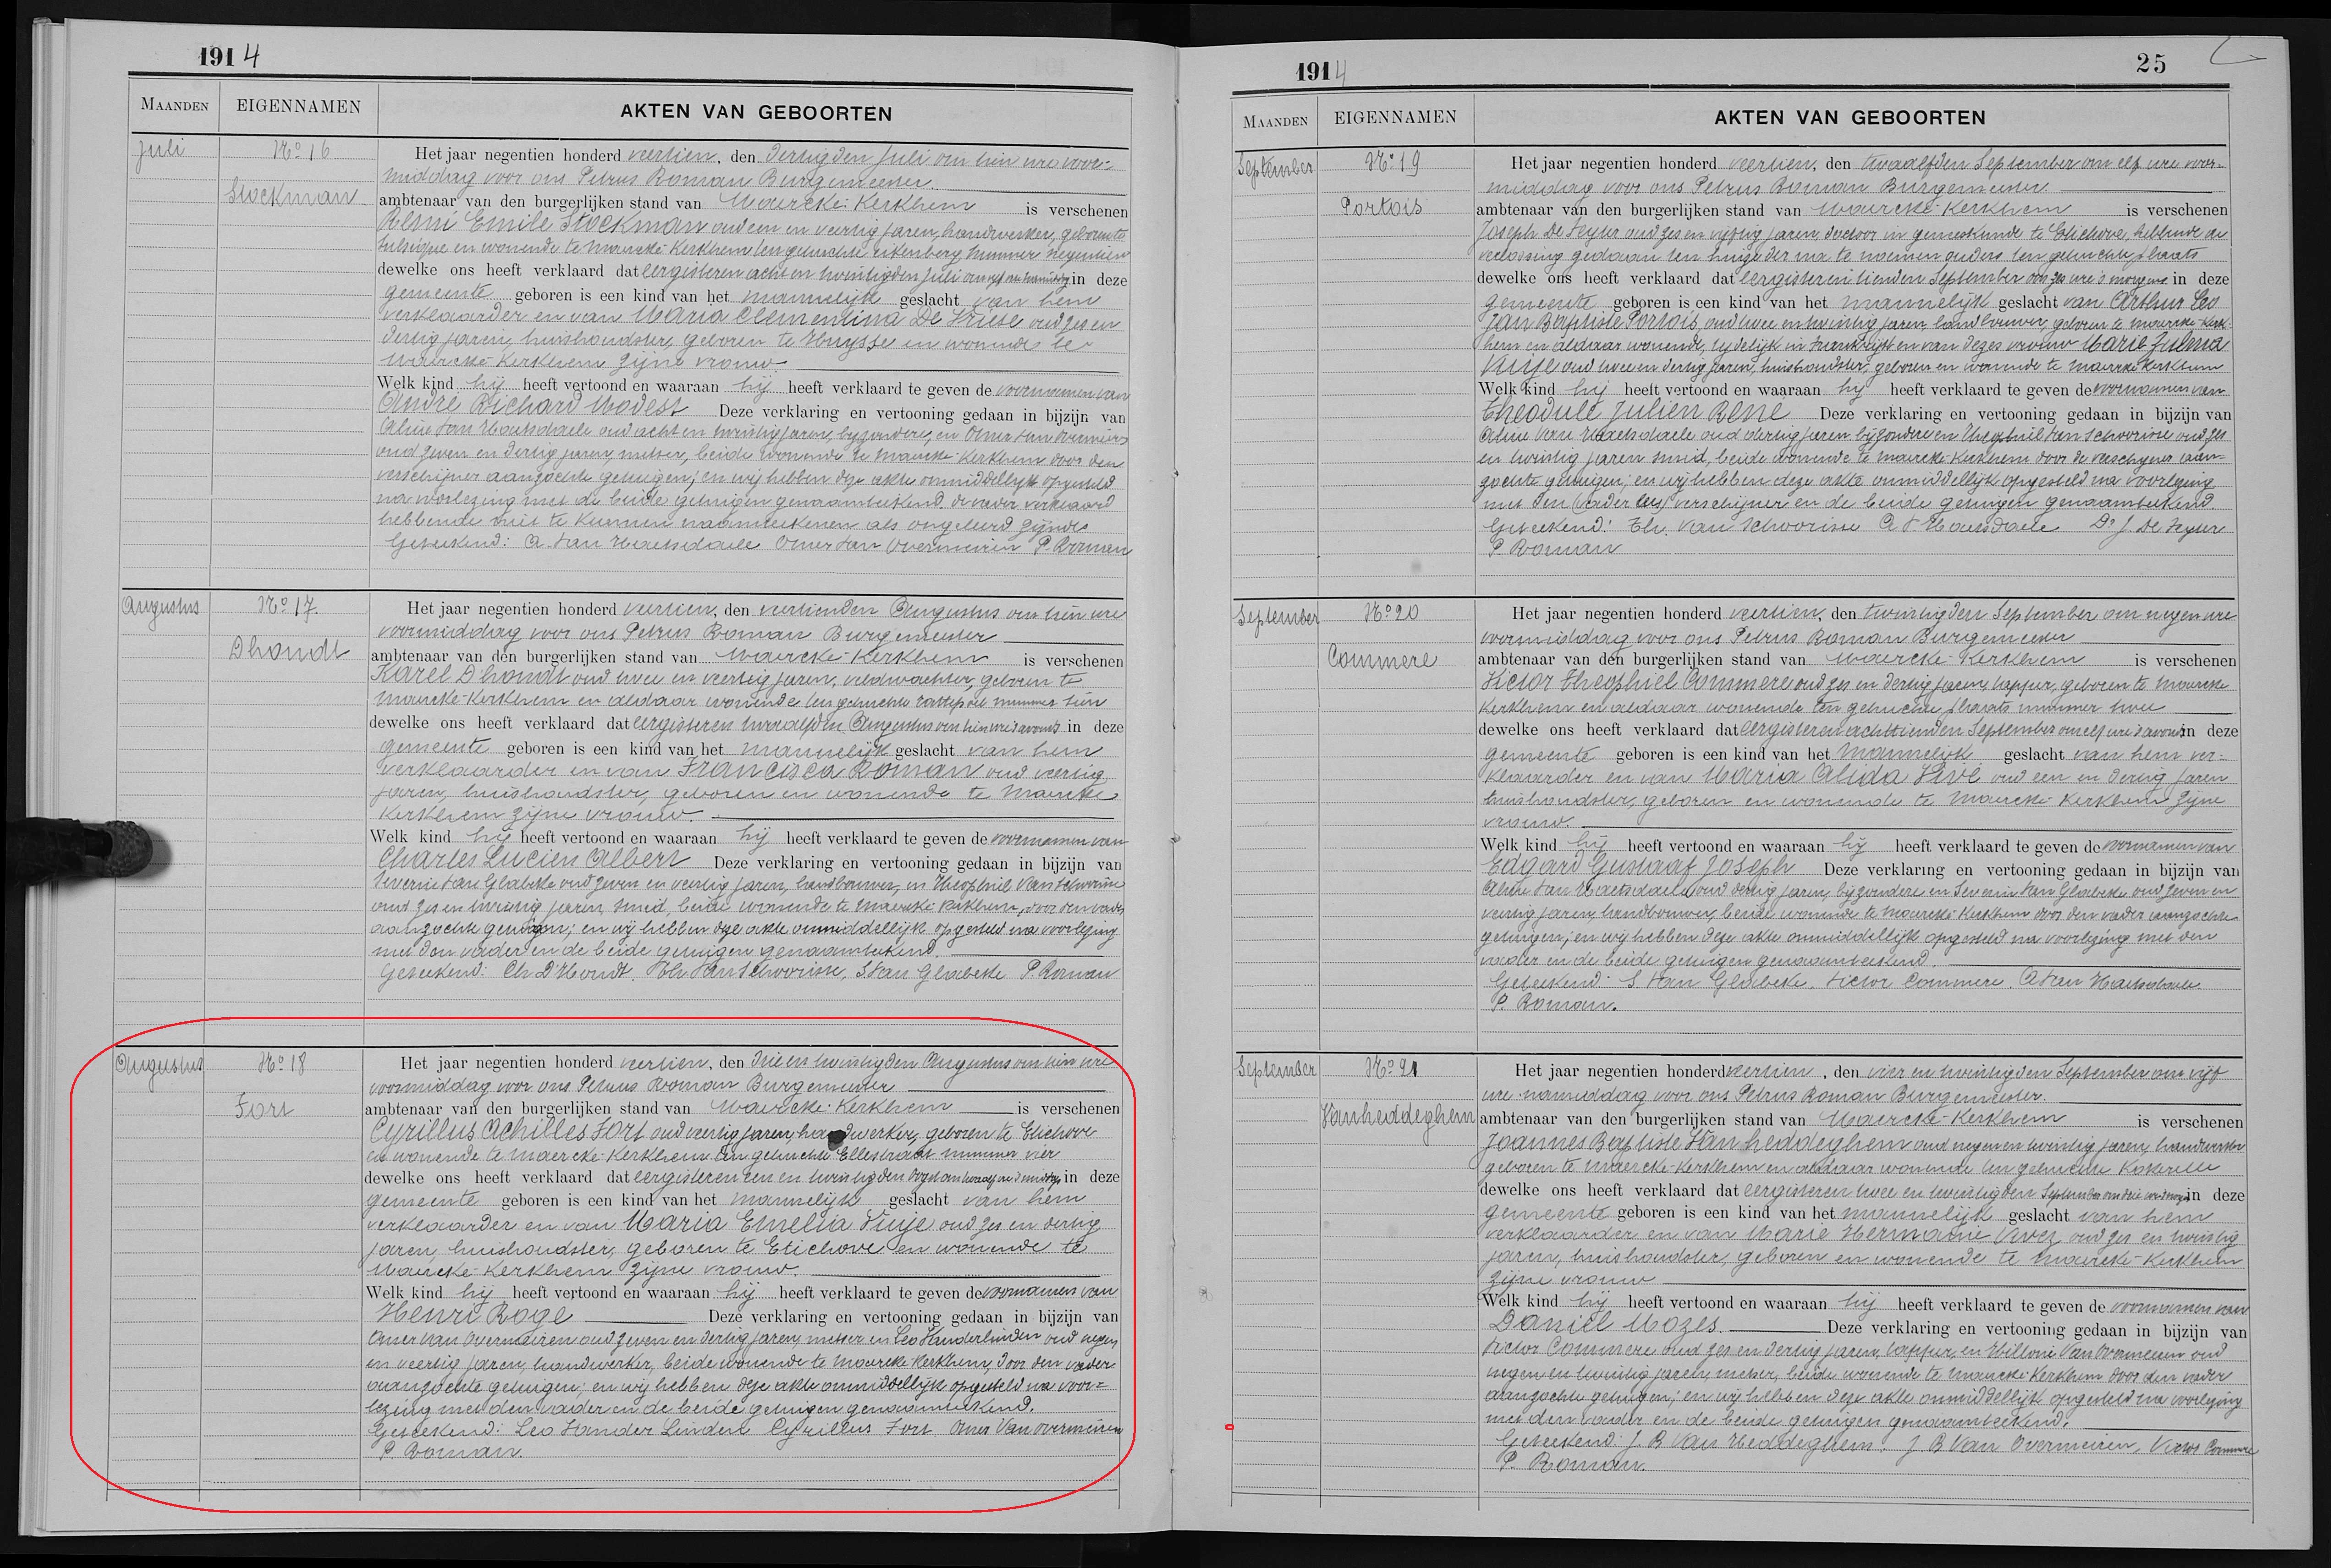 1914
MAANDEN EIGENNAMEN AKTEN VAN GEBOORTEN
Juli No 16 Het jaar negentien honderd veertien, den dertigden Juli om tien ure voor=
middag voor ons Petrus Roman Burgemeester.
Stockman ambtenaar van den burgerlijken stand van Maercke-Kerkhem is verschenen
Remi Emile Stockman oud een en veertig jaren, handwerker, geboren te
en wonende te Maercke-Kerkhem ten gehuchte Eikenberg nummer negentien
dewelke ons heeft verklaard dat eergisteren acht en twintigden Juli in deze
gemeente geboren is een kind van het mannelijk geslacht van hem
verklaarder en van Maria Clementina De Vriese oud zes en
dertig jaren, huishoudster, geboren te Huysse en wonende te
Maercke-Kerkhem zijne vrouw.
Welk kind hij heeft vertoond en waaraan hij heeft verklaard te geven de voornamen van
André Richard Modest Deze verklaring en vertooning gedaan in bijzijn van
Aline Van Haesdaele oud acht en twintig jaren, byzondere, en Omer Van Overmeiren
oud zeven en dertig jaren, metser, beide wonende te Maercke-Kerkhem door den
verschijner aangezochte getuigen; en wij hebben deze akte onmiddellijk opgesteld
na voorlezing met de beide getuigen genaamteekend de vader verklaard
hebbende niet te kunnen naamteekenen als ongeleerd zijnde
Geteekend: A. Van Haesdaele Omer Van Overmeiren P. Roman
Augustus No 17. Het jaar negentien honderd veertien, den veertienden Augustus om tien ure
voormiddag voor ons Petrus Roman Burgemeester
Dhondt ambtenaar van den burgerlijken stand van Maercke-Kerkhem is verschenen
Karel Dhondt oud twee en veertig jaren, veldwachter, geboren te
Maercke-Kerkhem en aldaar wonende ten gehuchte nummer tien
dewelke ons heeft verklaard dat eergisteren twaalfden Augustus om tien ure 's avonds in deze
gemeente geboren is een kind van het mannelijk geslacht van hem
verklaarder en van Francisca Roman oud veertig
jaren, huishoudster, geboren en wonende te Maercke
Kerkhem zijne vrouw.
Welk kind hij heeft vertoond en waaraan hij heeft verklaard te geven de voornamen van
Charles Lucien Albert Deze verklaring en vertooning gedaan in bijzijn van
Severin Van Glabeke oud zeven en veertig jaren, landbouwer, en Theophiel Van Schoorisse
oud zes en twintig jaren smid, beide wonende te Maercke-Kerkhem, door den vader
aangezochte getuigen; en wij hebben deze akte onmiddellijk opgesteld na voorlezing
met den vader en de beide getuigen genaamteekend.
Geteekend: Ch. D'Hondt. Th. Van Schoorisse, S. Van Glabeke P. Roman
Augustus No 18 Het jaar negentien honderd veertien, den drie en twintigden Augustus om tien ure
voormiddag voor ons Petrus Roman Burgemeester
Fort ambtenaar van den burgerlijken stand van Maercke-Kerkhem is verschenen
Cyrillus Achilles Fort oud veertig jaren, handwerker, geboren te Etichove
en wonende te Maercke-Kerkhem ten gehuchte Ellestraat nummer vier
dewelke ons heeft verklaard dat eergisteren een en twintigden Oogst om twaalf ure 's middags in deze
gemeente geboren is een kind van het mannelijk geslacht van hem
verklaarder en van Maria Emelia Vuije oud zes en dertig
jaren, huishoudster, geboren te Etichove en wonende te
Maercke-Kerkhem zijne vrouw.
Welk kind hij heeft vertoond en waaraan hij heeft verklaard te geven de voornamen van
Henri Roge Deze verklaring en vertooning gedaan in bijzijn van
Omer Van Overmeiren oud zeven en dertig jaren, metser en Leo Vanderlinden oud negen
en veertig jaren, handwerker, beide wonende te Maercke Kerkhem, door den vader
aangezochte getuigen; en wij hebben deze akte onmiddellijk opgesteld na voor=
lezing met den vader en de beide getuigen genaamteekend.
Geteekend: Leo Vander Linden Cyrillus Fort Omer Van Overmeiren
P. Roman.
1914 25
MAANDEN EIGENNAMEN AKTEN VAN GEBOORTEN
September No 19 Het jaar negentien honderd veertien, den twaalfden September om elf ure voor=
middag voor ons Petrus Roman Burgemeester
Portois ambtenaar van den burgerlijken stand van Maercke-Kerkhem is verschenen
Joseph De Feyter oud zes en vijftig jaren, doctoor in geneeskunde te Etichove, hebbende de
verlossing gedaan ten huize der na te noemen ouders ten gehuchte plaats
dewelke ons heeft verklaard dat eergisteren tienden September om zes ure 's morgens in deze
gemeente geboren is een kind van het mannelijk geslacht van Arthur Leo
Jan Baptiste Portois, oud twee en twintig jaren, landbouwer, geboren te Maercke-Kerk-
hem en aldaar wonende, tijdelijk in Frankrijk en van dezes vrouw Marie Zulma
Vuije oud twee en dertig jaren, huishoudster, geboren en wonende te Maercke Kerkhem
Welk kind hij heeft vertoond en waaraan hij heeft verklaard te geven de voornamen van
Theodule Julien René Deze verklaring en vertooning gedaan in bijzijn van
Aline Van Haesdaele oud dertig jaren byzondere en Theophiel Van Schoorisse oud zes
en twintig jaren smid, beide wonende te Maercke-Kerkhem door de verschijner aan-
gezochte getuigen; en wij hebben deze akte onmiddellijk opgesteld na voorlezing
met den (vader lees) verschijner en de beide getuigen genaamteekend.
Geteekend: Th. Van Schoorisse A. V. Haesdaele Dr J. De Feyter
P. Roman
September No 20 Het jaar negentien honderd veertien, den twintigden September om negen ure
voormiddag voor ons Petrus Roman Burgemeester
Commere ambtenaar van den burgerlijken stand van Maercke-Kerkhem is verschenen
Victor Theophiel Commere oud zes en dertig jaren, tapper, geboren te Maercke
Kerkhem en aldaar wonende ten gehuchte plaats nummer twee
dewelke ons heeft verklaard dat eergisteren achttienden September om elf ure 's avonds in deze
gemeente geboren is een kind van het mannelijk geslacht van hem ver-
klaarder en van Maria Alida Hivé oud een en dertig jaren
huishoudster, geboren en wonende te Maercke-Kerkhem zijne
vrouw.
Welk kind hij heeft vertoond en waaraan hij heeft verklaard te geven de voornamen van
Edgard Gustaaf Joseph Deze verklaring en vertooning gedaan in bijzijn van
Aline Van Haesdaele oud dertig jaren, byzondere en Severin Van Glabeke oud zeven en
veertig jaren, landbouwer, beide wonende te Maercke-Kerkhem door den vader aangezochte
getuigen; en wij hebben deze akte onmiddellijk opgesteld na voorlezing met den
vader en de beide getuigen genaamteekend.
Geteekend: S. Van Glabeke. Victor Commere. A Van Haesdaele
P. Roman.
September No 21 Het jaar negentien honderd veertien, den vier en twintigden September om vijf
ure namiddag voor ons Petrus Roman Burgemeester.
Vanheddeghem ambtenaar van den burgerlijken stand van Maercke-Kerkhem is verschenen
Joannes Baptiste Vanheddeghem oud negen en twintig jaren, handwerker
geboren te Maercke-Kerkhem en aldaar wonende ten gehuchte
dewelke ons heeft verklaard dat eergisteren twee en twintigden September om drie in deze
gemeente geboren is een kind van het mannelijk geslacht van hem
verklaarder en van Marie Hermanie oud zes en twintig
jaren, huishoudster, geboren en wonende te Maercke-Kerkhem
zijne vrouw
Welk kind hij heeft vertoond en waaraan hij heeft verklaard te geven de voornamen van
Daniël Mozes. Deze verklaring en vertooning gedaan in bijzijn van
Victor Commere oud zes en dertig jaren, tapper, en Van Overmeiren oud
negen en twintig jaren, metser, beide wonende te Maercke-Kerkhem door den vader
aangezochte getuigen; en wij hebben deze akte onmiddellijk opgesteld na voorlezing
met den vader en de beide getuigen genaamteekend.
Geteekend: J B Van Heddeghem. J B Van Overmeiren, Victor Commere
P. Roman.